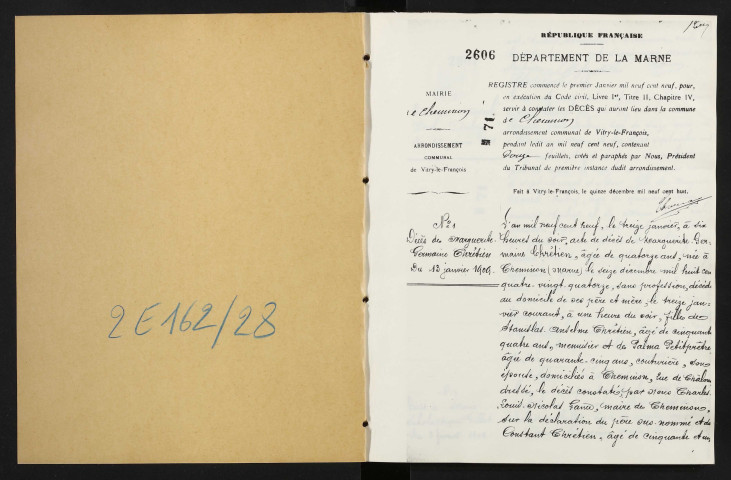 2E162/28
RÉPUBLIQUE FRANÇAISE
2606
DÉPARTEMENT DE LA MARNE
MAIRIE
de Cheminon
ARRONDISSEMENT
COMMUNAL
de Vitry-le-François
71
REGISTRE commencé le premier Janvier mil neuf cent neuf, pour,
en exécution du Code civil, Livre Ier, Titre II, Chapitre IV,
servir à constater les DÉCÈS qui auront lieu dans la commune
de Cheminon
arrondissement communal de Vitry-le-François,
pendant ledit an mil neuf cent neuf, contenant
Douze feuillets, cotés et paraphés par Nous, Président
du Tribunal de première instance dudit arrondissement.
Fait à Vitry-le-François, le quinze décembre mil neuf cent huit.
No 1
Décès de Marguerite
Germaine Chrétien
Du 13 janvier 1909.
L'an mil neuf cent neuf, le treize janvier, à six
heures du soir, acte de décès de Marguerite Ger-
maine Chrétien, âgée de quatorze ans, née à
Cheminon (Marne) le seize décembre mil huit cent
quatre-vingt-quatorze, sans profession, décédée
au domicile de ses père et mère, le treize jan-
vier courant, à une heure du soir, fille de
Stanislas Anselme Chrétien, âgé de cinquante
quatre ans, menuisier et de Palma Petitprêtre
âgée de quarante-cinq ans, couturière, son
épouse, domiciliés à Cheminon, rue de Châlon
dressé, le décès constaté, par Nous Charles
Louis Nicolas, maire de Cheminon,
sur la déclaration du père sus-nommé et de
Constant Chrétien, âgé de cinquante et un